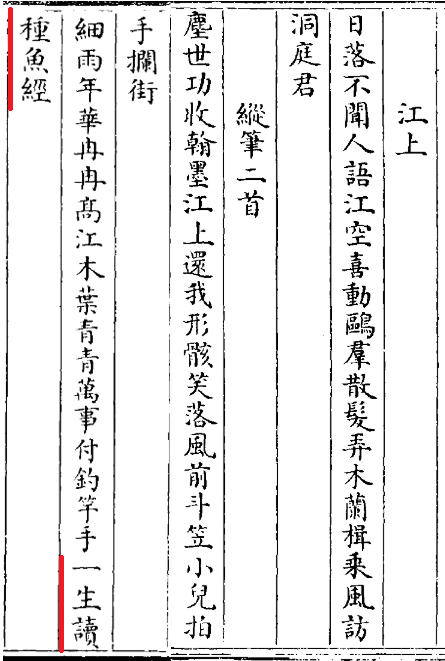 江上
日落不聞人語江空喜動鷗羣散髮弄木蘭楫乘風訪
洞庭君
縱筆二首
塵世功收翰墨江上還我形骸笑落風前斗笠小兒拍
手攔街
細雨年華冉冉髙江木葉青青萬事付釣竿手一生讀
種魚經